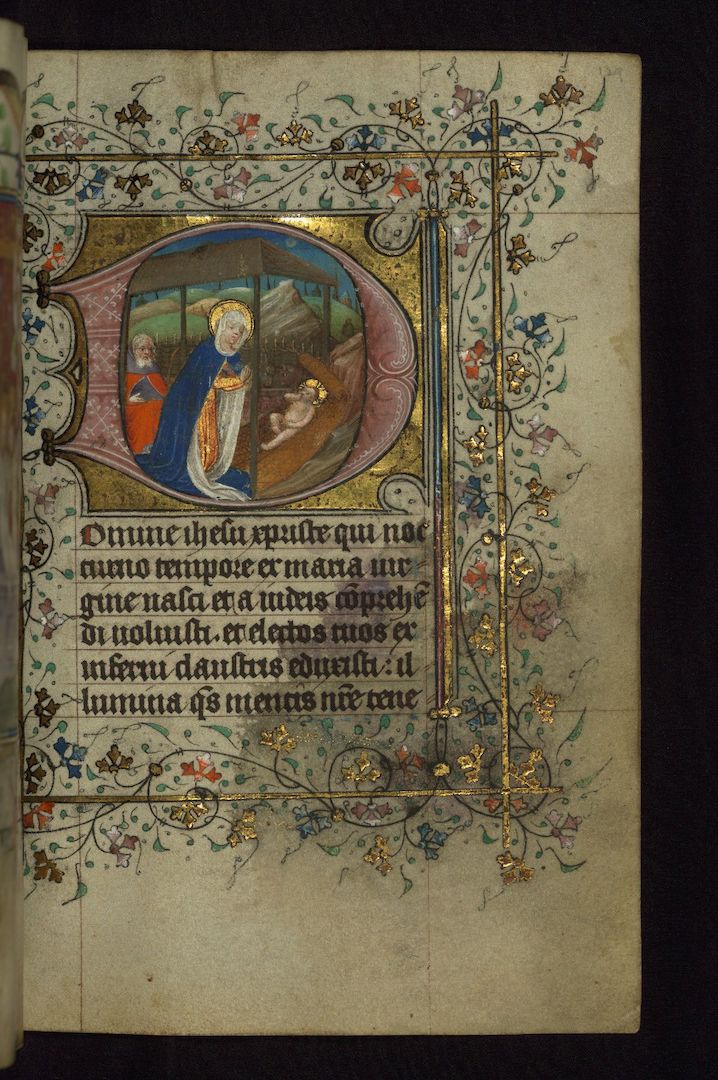 Domine ihesu xpriste qui noc
turno tempore ex maria uir
gine nasci et a iudeis cōprehē
di uoluisti. et electos tuos ex
inferni claustris eduxisti: il
lumina qs mentis nr̄e tene